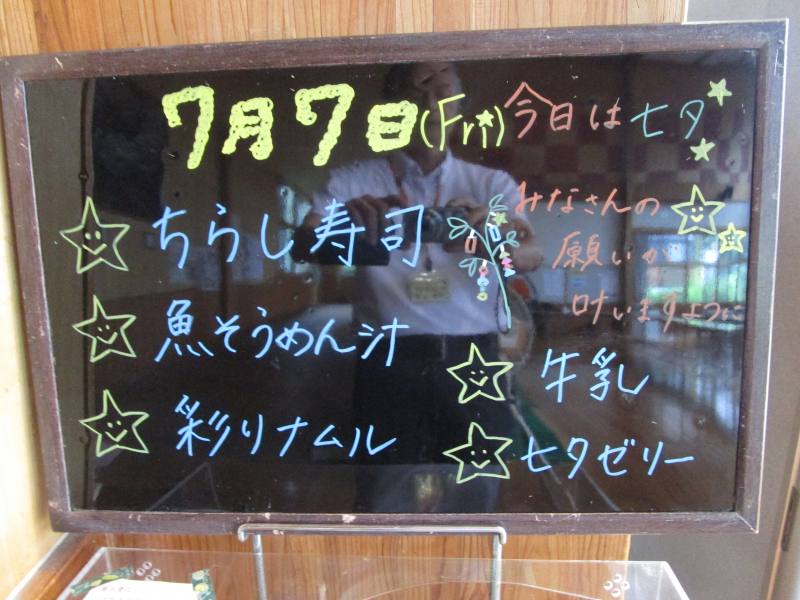 7月7日(Fri)
今日は七夕
みなさんの
願いが
叶いますように
ちらし寿司
魚そうめん汁
彩りナムル
牛乳
七夕ゼリー